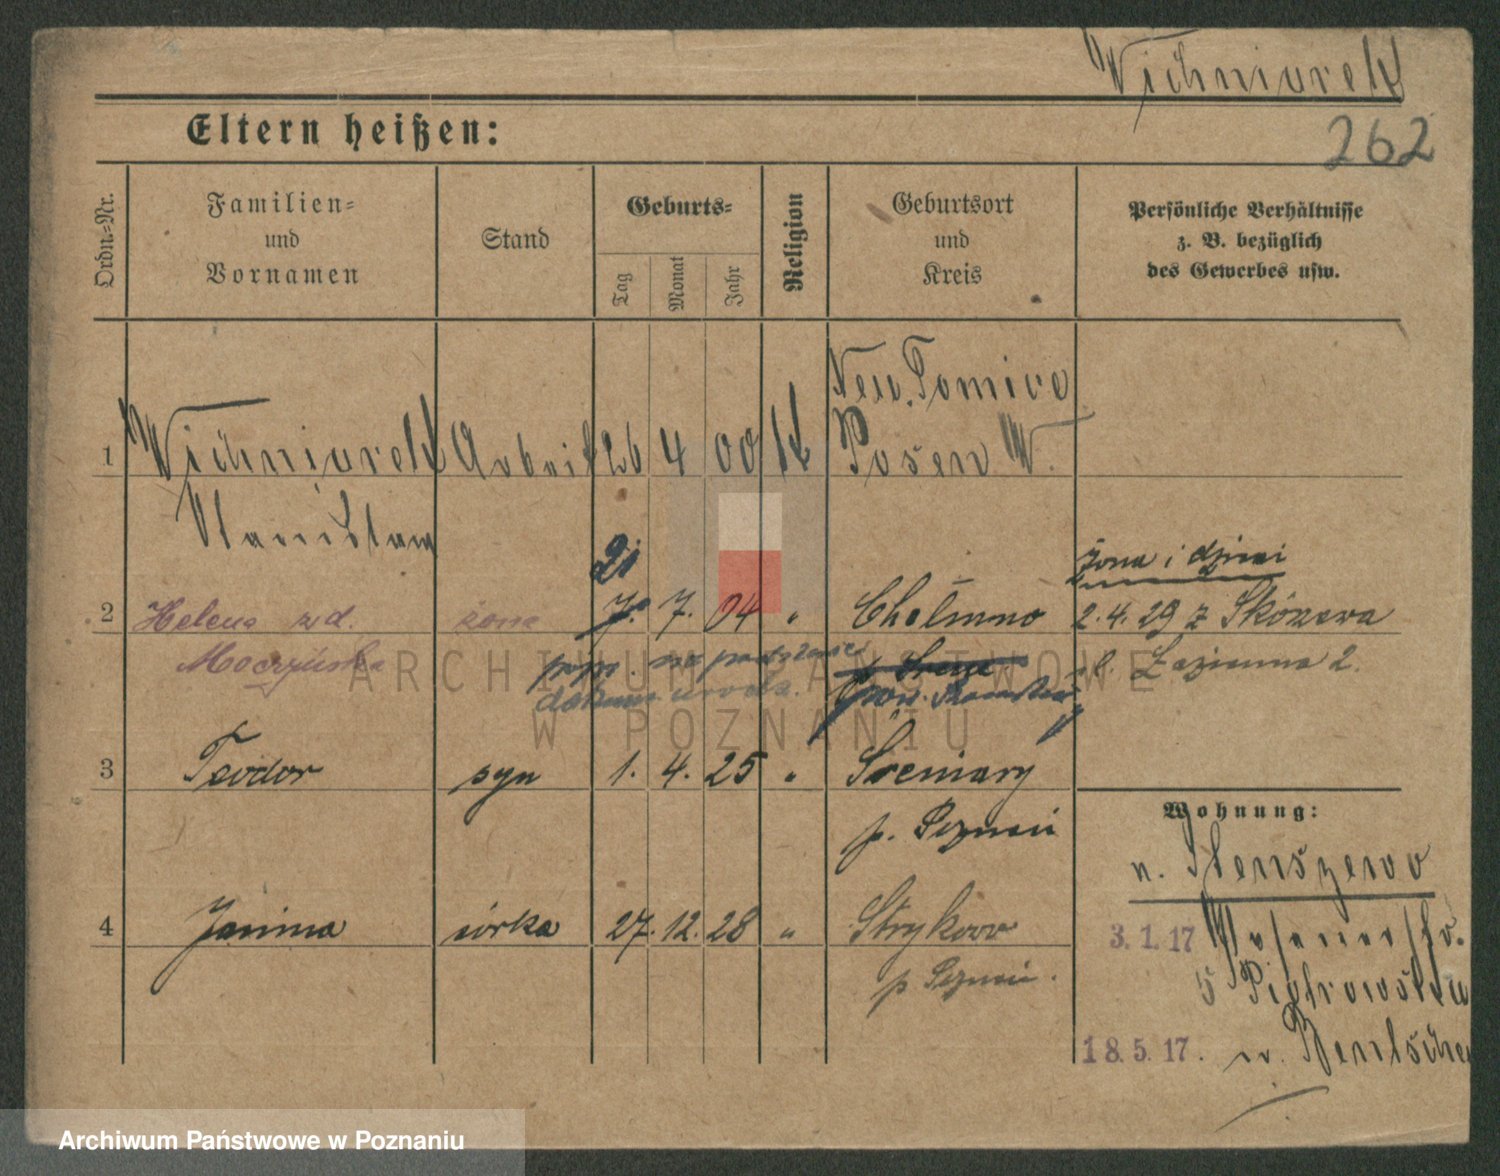 Wichniarek
Eltern heißen:
262
Ordn.-Nr.
Familien-
und
Vornamen
Stand
Geburts-
Tag
Monat
Jahr
Religion
Geburtsort
und
Kreis
Persönliche Verhältnisse
z. B. bezüglich
des Gewerbes usw.
Neu Tomice
1 Wichniarek Arbeit 26 4 00 K Posen W.
Stanislaw
21
żona i dzieci
2 Helena zd. żona 7. 7. 04 " Chełmno 2.4.29 z Skórzewa
Moczyńska
popr. na podstawie
p. Śrem
ul. Łazienna 2.
dokum. urodz.
pow. Szamotuły
3 Teodor syn 1. 4. 25 " Śreniawy
p. Poznań
Wohnung:
n. Stenszewo
4 Janina córka 27. 12. 28 " Strykowo
3.1.17 Posenerstr.
p Poznań.
5 Piotrowski
18.5.17. n. Bentschen
ARCHIWUM PAŃSTWOWE
W POZNANIU
Archiwum Państwowe w Poznaniu